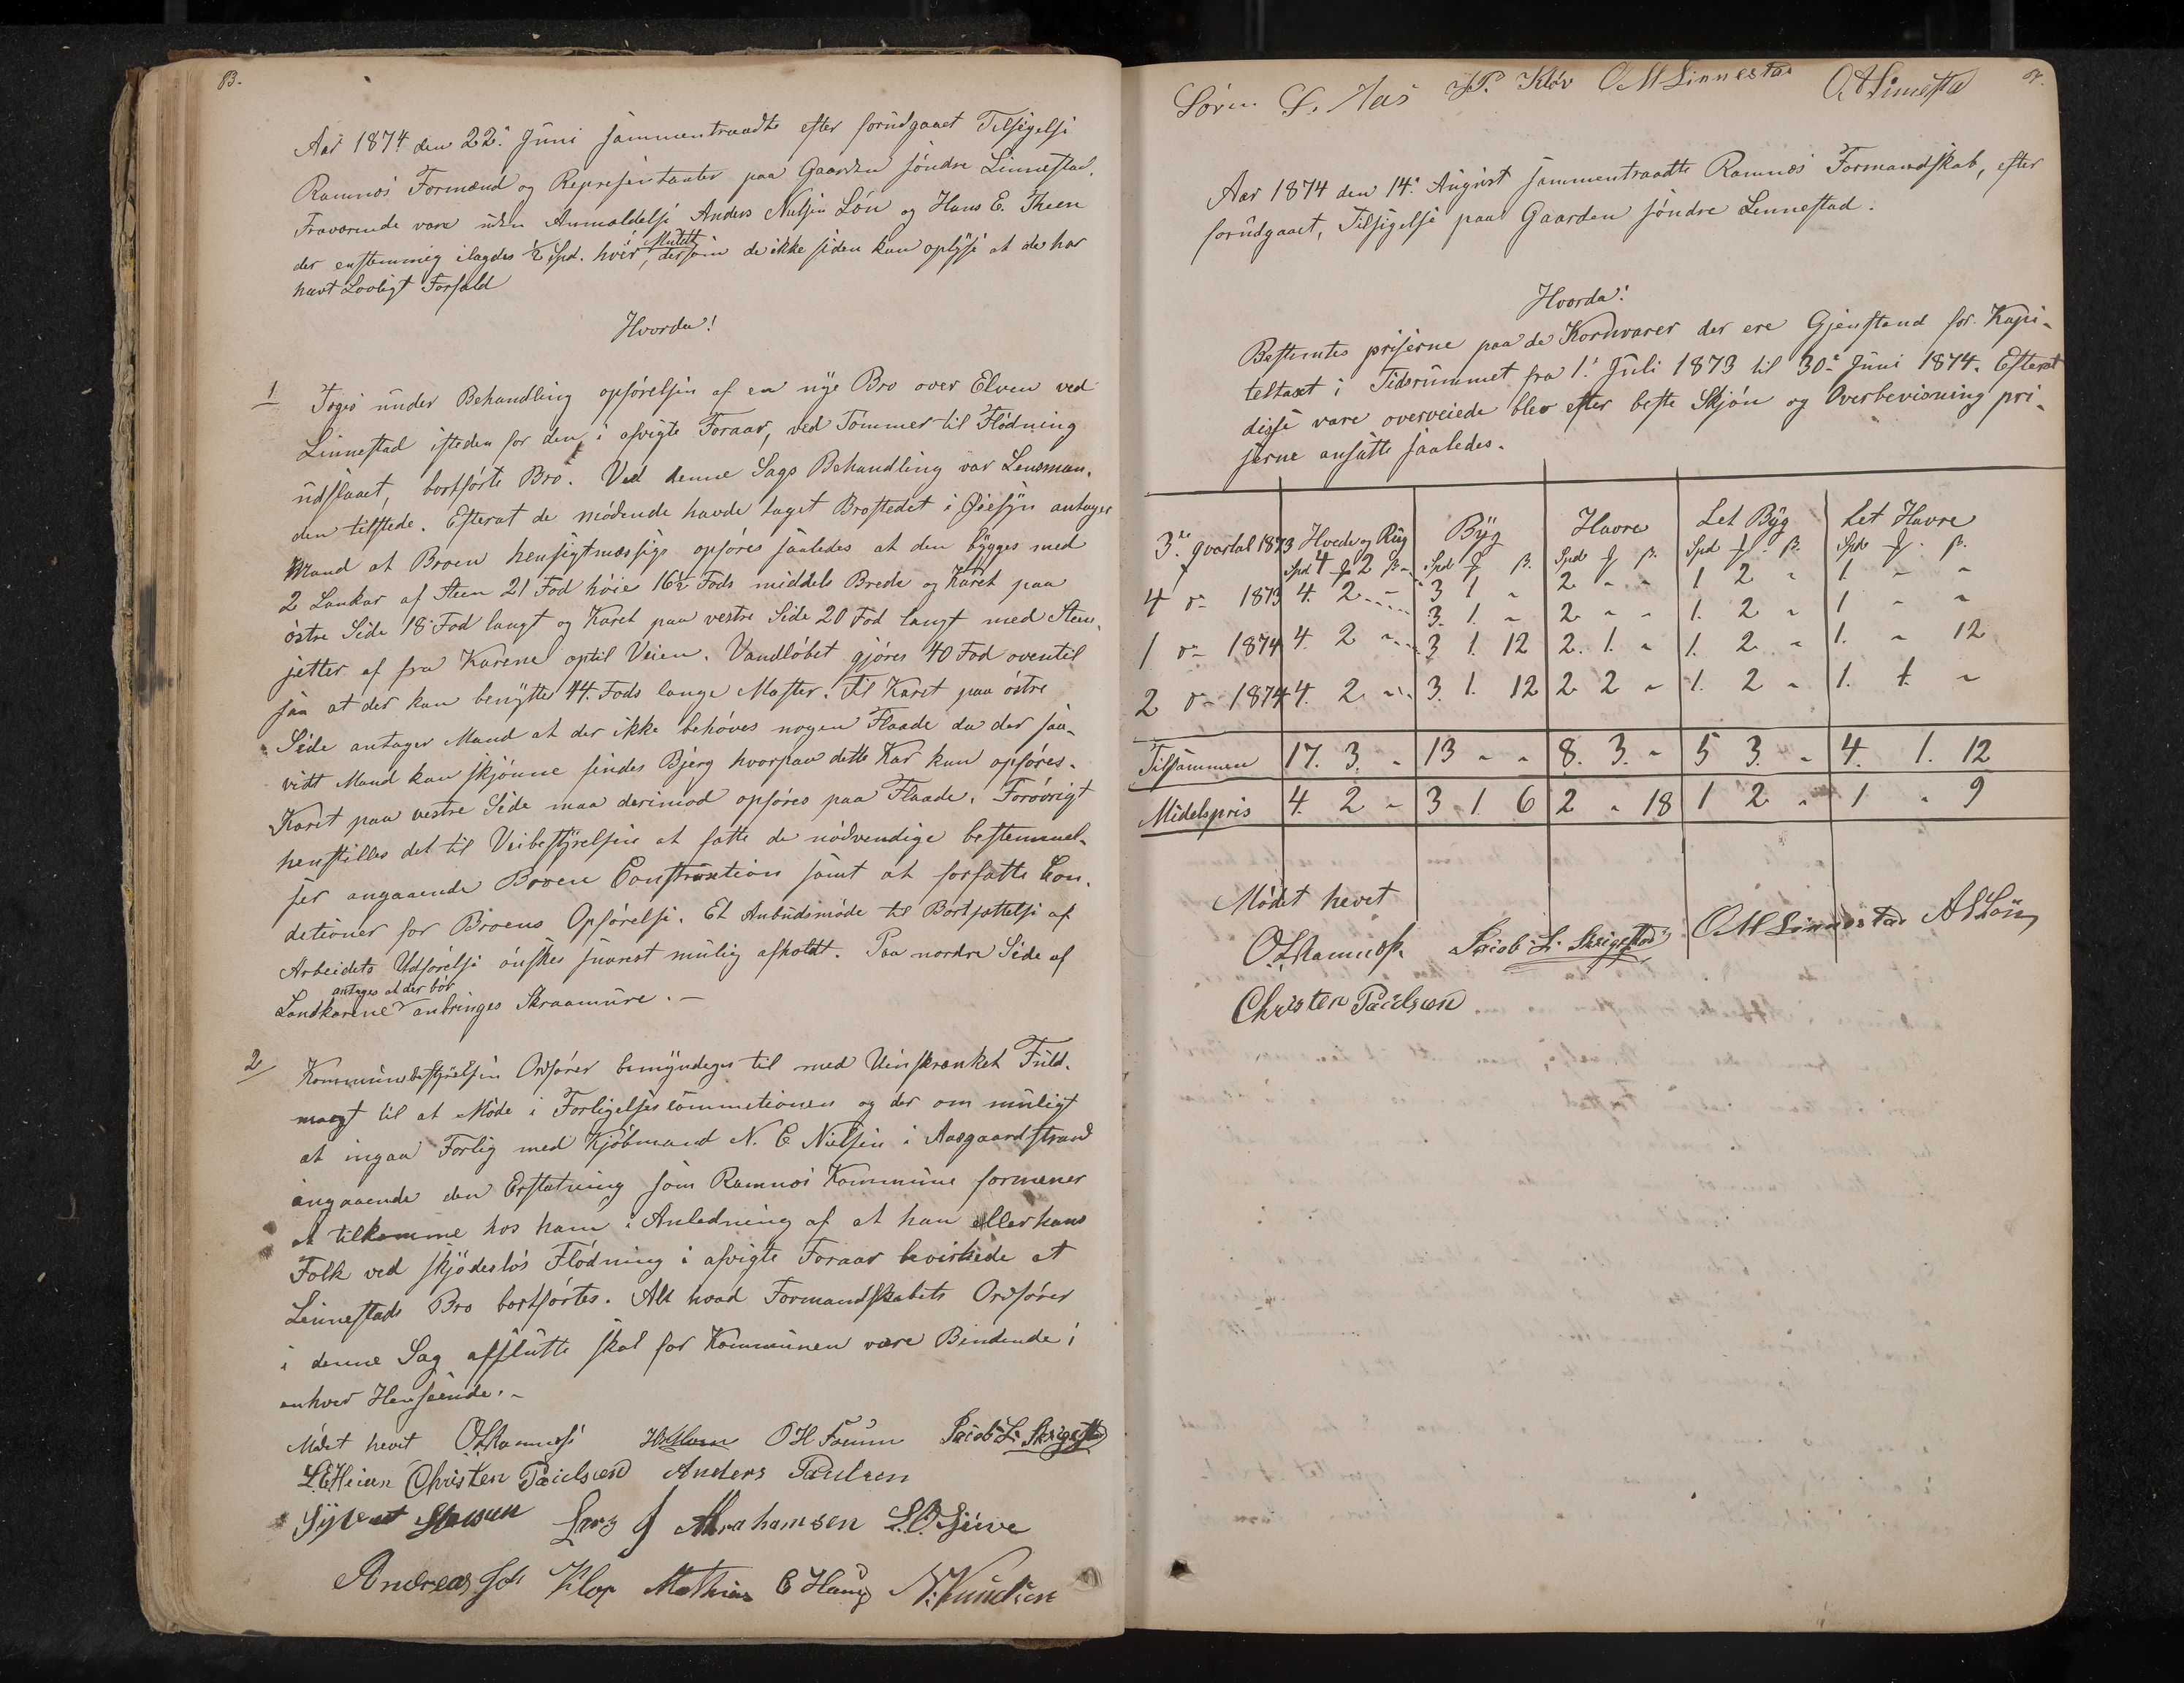 83.
Aar 1874 den 22: Juni sammentraadte efter forudgaaet Tilsigelse
Ramnæs Formænd og Repræsentanter paa Gaarden søndre Linnestad.
Fraværende vare uden Anmeldelse Anders Nielsen Lön og Hans E. Theen
der enstemmig ilagdes ½ Spd. hver, i Mulkt dersom de ikke siden kan oplyse at de har
havt Lovligt Forfald
Hvorda!
1 Toges under Behandling opførelsen af en nye Bro over Elven ved
Linnestad isteden for den, i afvigte Foraar, ved Tømmer til Flødning
udslaaet, bortførte Bro. Ved denne Sags Behandling var Lensman-
den tilstede. Efterat de mødende havde taget Brostedet i Øiesyn antager
Mand at Broen hensigtmæssigs opføres saaledes at den bygges med
2 Lankar af Steen 21 Fod høie 16½ Fods middels Brede og Karet paa
østre Side 18 Fod langt og Karet paa vestre Side 20 Fod langt med Steen-
jetter af fra Karene optil Veien. Vandløbet gjøres 40 Fod oventil
saa at der kan benyttes 44. Fods lange Master. Til Karet paa østre
Side antager Mand at der ikke behøves nogen Flaade da der saa-
vidt Mand kan skjønne findes Bjerg hvorpaa dette Kar kan opføres.
Karet paa vestre Side maa derimod opføres paa Flaade. Forøvrigt
henstilles det til Veibestyrelsen at fatte de nødvendige bestemmel-
ser angaaende Broen Construction samt at forfatte Con-
detioner for Broens Opførelse. Et Anbudsmøde til Bortsættelse af
Arbeidets Udførelse ønskes snarest mulig afholdt. Paa nordre Side af
Landkarene antages at der bør anbringes Skraamure. -
2/ Kommunebestyrelsen Ordfører bemyndeges til med Uinskrænket Fuld-
magt til at Møde i Forligelsescommetionen og der om muligt
at ingaa Forlig med Kjøbmand N. C Nielsen i Aasgaardstrand
angaaende den Erstatning som Ramnæs Kommune formener
at tilkomme hos ham i Anledning af at han eller hans
Folk ved skjødesløs Flødning i afvigte Foraar bevirkede at
Linnestads Bro bortførtes. Alt hvad Formandskabets Ordfører
i denne Sag afslutte skal for Kommunen være Bindende i
enhver Henseende. -
Mødet hevet O L Ramnæs O H Foinn Jacob L. Skrigestad
L. E Heian Christen Paulsen Anders Paulsen
Sylvert Lars J Abrahamsen L. O.
Andreas Mathias C Haug N. Knudsen
Søren S. Aas P. Kløv O M Linnestad O A Linnesta
Aar 1874 den 14: August sammentraadte Ramnæs Formandskab, efter
forudgaaet, Tilsigelse paa Gaarden søndre Lennestad.
Hvorda!
Bestemtes priserne paa de Kornvarer der ere Gjenstand for Kapi-
teltaxt i Tidsrummet fra 1: Juli 1873 til 30: Juni 1874. Efterat
disse vare overveiede blev efter beste Skjøn og Overbevisning pri-
serne ansatte saaledes.
3: qvartal 1873 Hvede og Rug Byg Havre Let Byg Let Havre
Spd 4 2 ß - Spd ß. Spd ß. Spd ß. Spd ß.
3 1 - 2 - - 1 2 - 1 - -
4 d- 1873 4. 2 - 3. 1. - 2 - - 1. 2 - 1 - -
1 d- 1874 4. 2 - 3 1. 12 2. 1. - 1. 2 - 1. - 12
2 d- 1874 4. 2 - 3. 1. 12 2 2 - 1. 2 - 1. 1. -
Tilsammen 17. 3. - 13 - - 8. 3. - 5 3. - 4. 1. 12
Midelspris 4. 2 - 3 1. 6 2 - 18 1 2 - 1 - 9
Mødet hevet
O L Ramnæs. Jacob L. Skrigestad O M Linnestad A Lön
Christen Paulsen